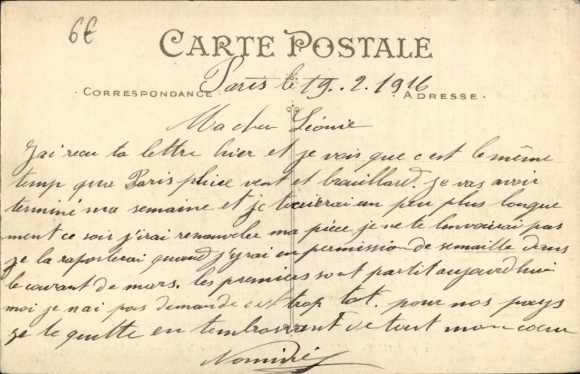 6€
CARTE POSTALE
Paris le 19.2.1916
CORRESPONDANCE
ADRESSE
Ma cher Léonie
J'ai recu ta lettre hier et je vois que c est le même
temp que Paris pluie vent et brouillard. je vas avoir
terminé ma semaine et je un peu plus longue
ment ce soir j'irai renouveler ma pièce je ne te l'envoirai pas
je la raporterai quand j'yrai en permission de semaille dans
le courant de mars. les premiers sont partit aujourd'hui
moi je n'ai pas demandé trop tot. pour nos pays
je te quitte en t'embrassant de tout mon cœur